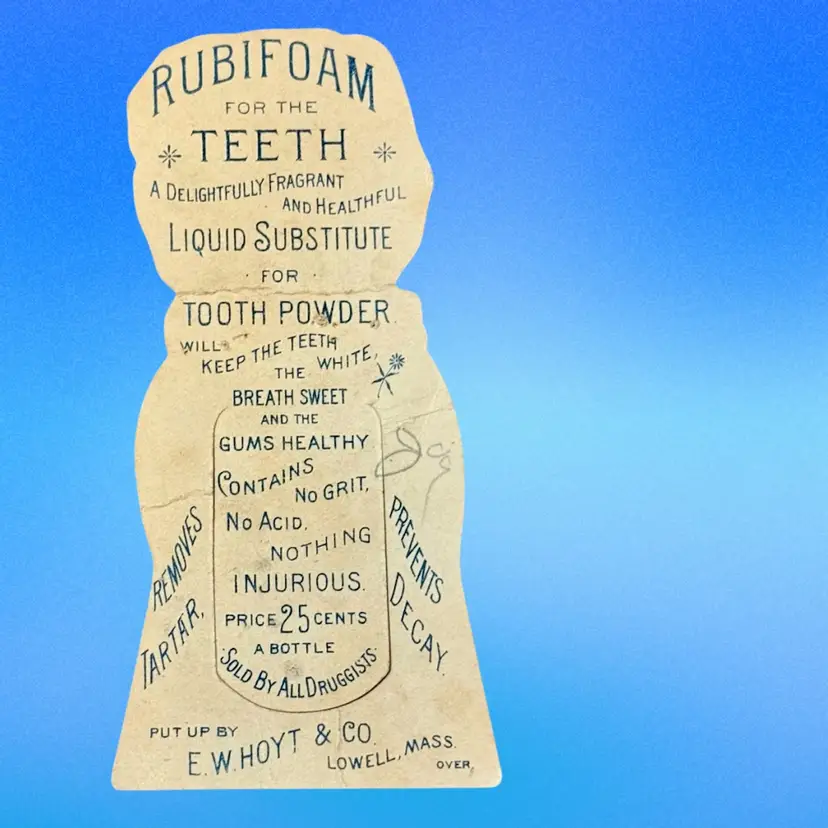 RUBIFOAM
FOR THE
TEETH
A DELIGHTFULLY FRAGRANT
AND HEALTHFUL
LIQUID SUBSTITUTE
· FOR ·
TOOTH POWDER.
WILL
KEEP THE TEETH
THE WHITE,
BREATH SWEET
AND THE
GUMS HEALTHY
CONTAINS
NO GRIT,
NO ACID,
NOTHING
INJURIOUS.
PRICE 25 CENTS
A BOTTLE
·SOLD BY ALL DRUGGISTS·
REMOVES
TARTAR,
PREVENTS
DECAY.
PUT UP BY
E. W. HOYT & CO.
LOWELL, MASS.
OVER,